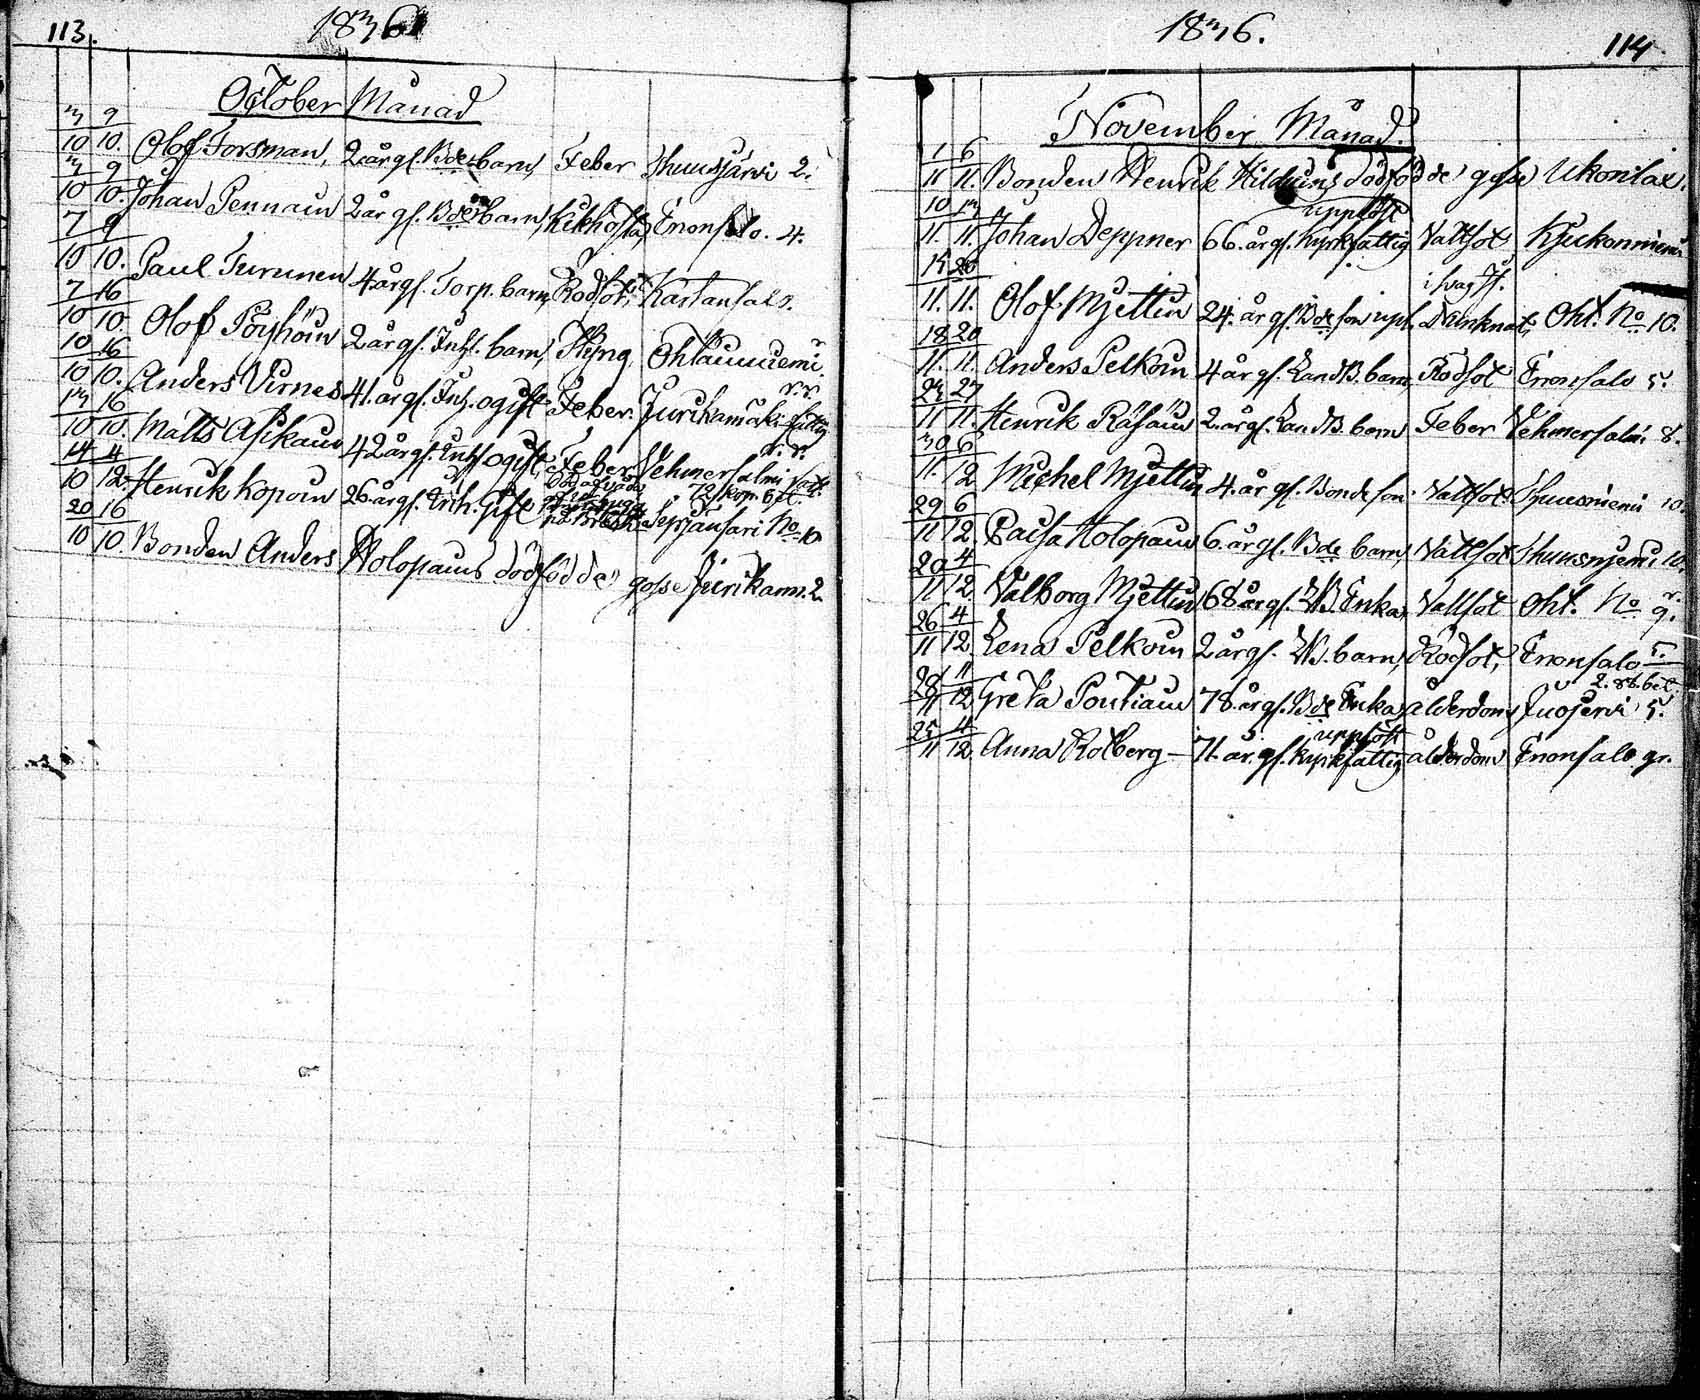 113.
1836
October Månad
3/10 9/10. Olof Forsman, 2 år gl. Bde barn, Feber Thuusjärvi 2.
3/10 9/10. Johan Pennain 2 år gl. Bde barn, Kikhosta, Enonsalo. 4.
7/10 9/10. Paul Turunen 4 år gl. Torp. barn, Rödsot, Kartansalo.
7/10 16/10. Olof Pöyhöin 2 år gl. Inh. barn,
10/10 16/10. Anders Virnes 41. år gl. Inh. ogift Feber. Jurikamäki fattig
13/10 16/10. Matts Asikain 42 år gl. Inh. ogift Feber Vehmersalmi
14/10 4/12. Henrik Kopoin 26. år gl. Inh. Gift
72 kop. bet.
No 10
20/10 16/10. Bonden Anders Holopains dödfödde gosse Jurikam. 2.
1836.
114
November Månad.
1/11 6/11. Bonden Henrik dödfödde gosse Ukonlax.
upplöst
10/11. 13/11. Johan Deppner 66. år gl. Kyrkfattig Vattsot,
15/11. 20/11. Olof Mjettin 24. år gl. Bde son upl. Drunknat, Oht. No 10.
18/11. 20/11. Anders Pelkoin 4 år gl. Land B. barn, Rödsot Enonsalo 5.
23/11 27/11. Henrik Räsäin 2. år gl. Land B. barn Feber Vehmersalmi 8.
30/11. 6/12 Michel Mjettin 4. år gl. Bonde son. Vattsot Thuusniemi 10.
29/11 6/12. Caisa Holopain 6. år gl. Bde barn, Vattsot Thuusnjemi 10.
20/11 4/12. Valborg Mjettin 68 år gl. LB. Enka, Vattsot Oht. No 9.
26/11 4/12. Lena Pelkoin 2 år gl. LB. barn, Rödsot, Enonsalo 5.
2. rb. bet.
11/12 Greta Pontiain 78. år gl. Bde Enka, ålderdom Juojervi 5.
upplöst
25/11 4/12. Anna Rolberg — 71. år. gl. Kyrkfattig ålderdom Enonsalo gr.